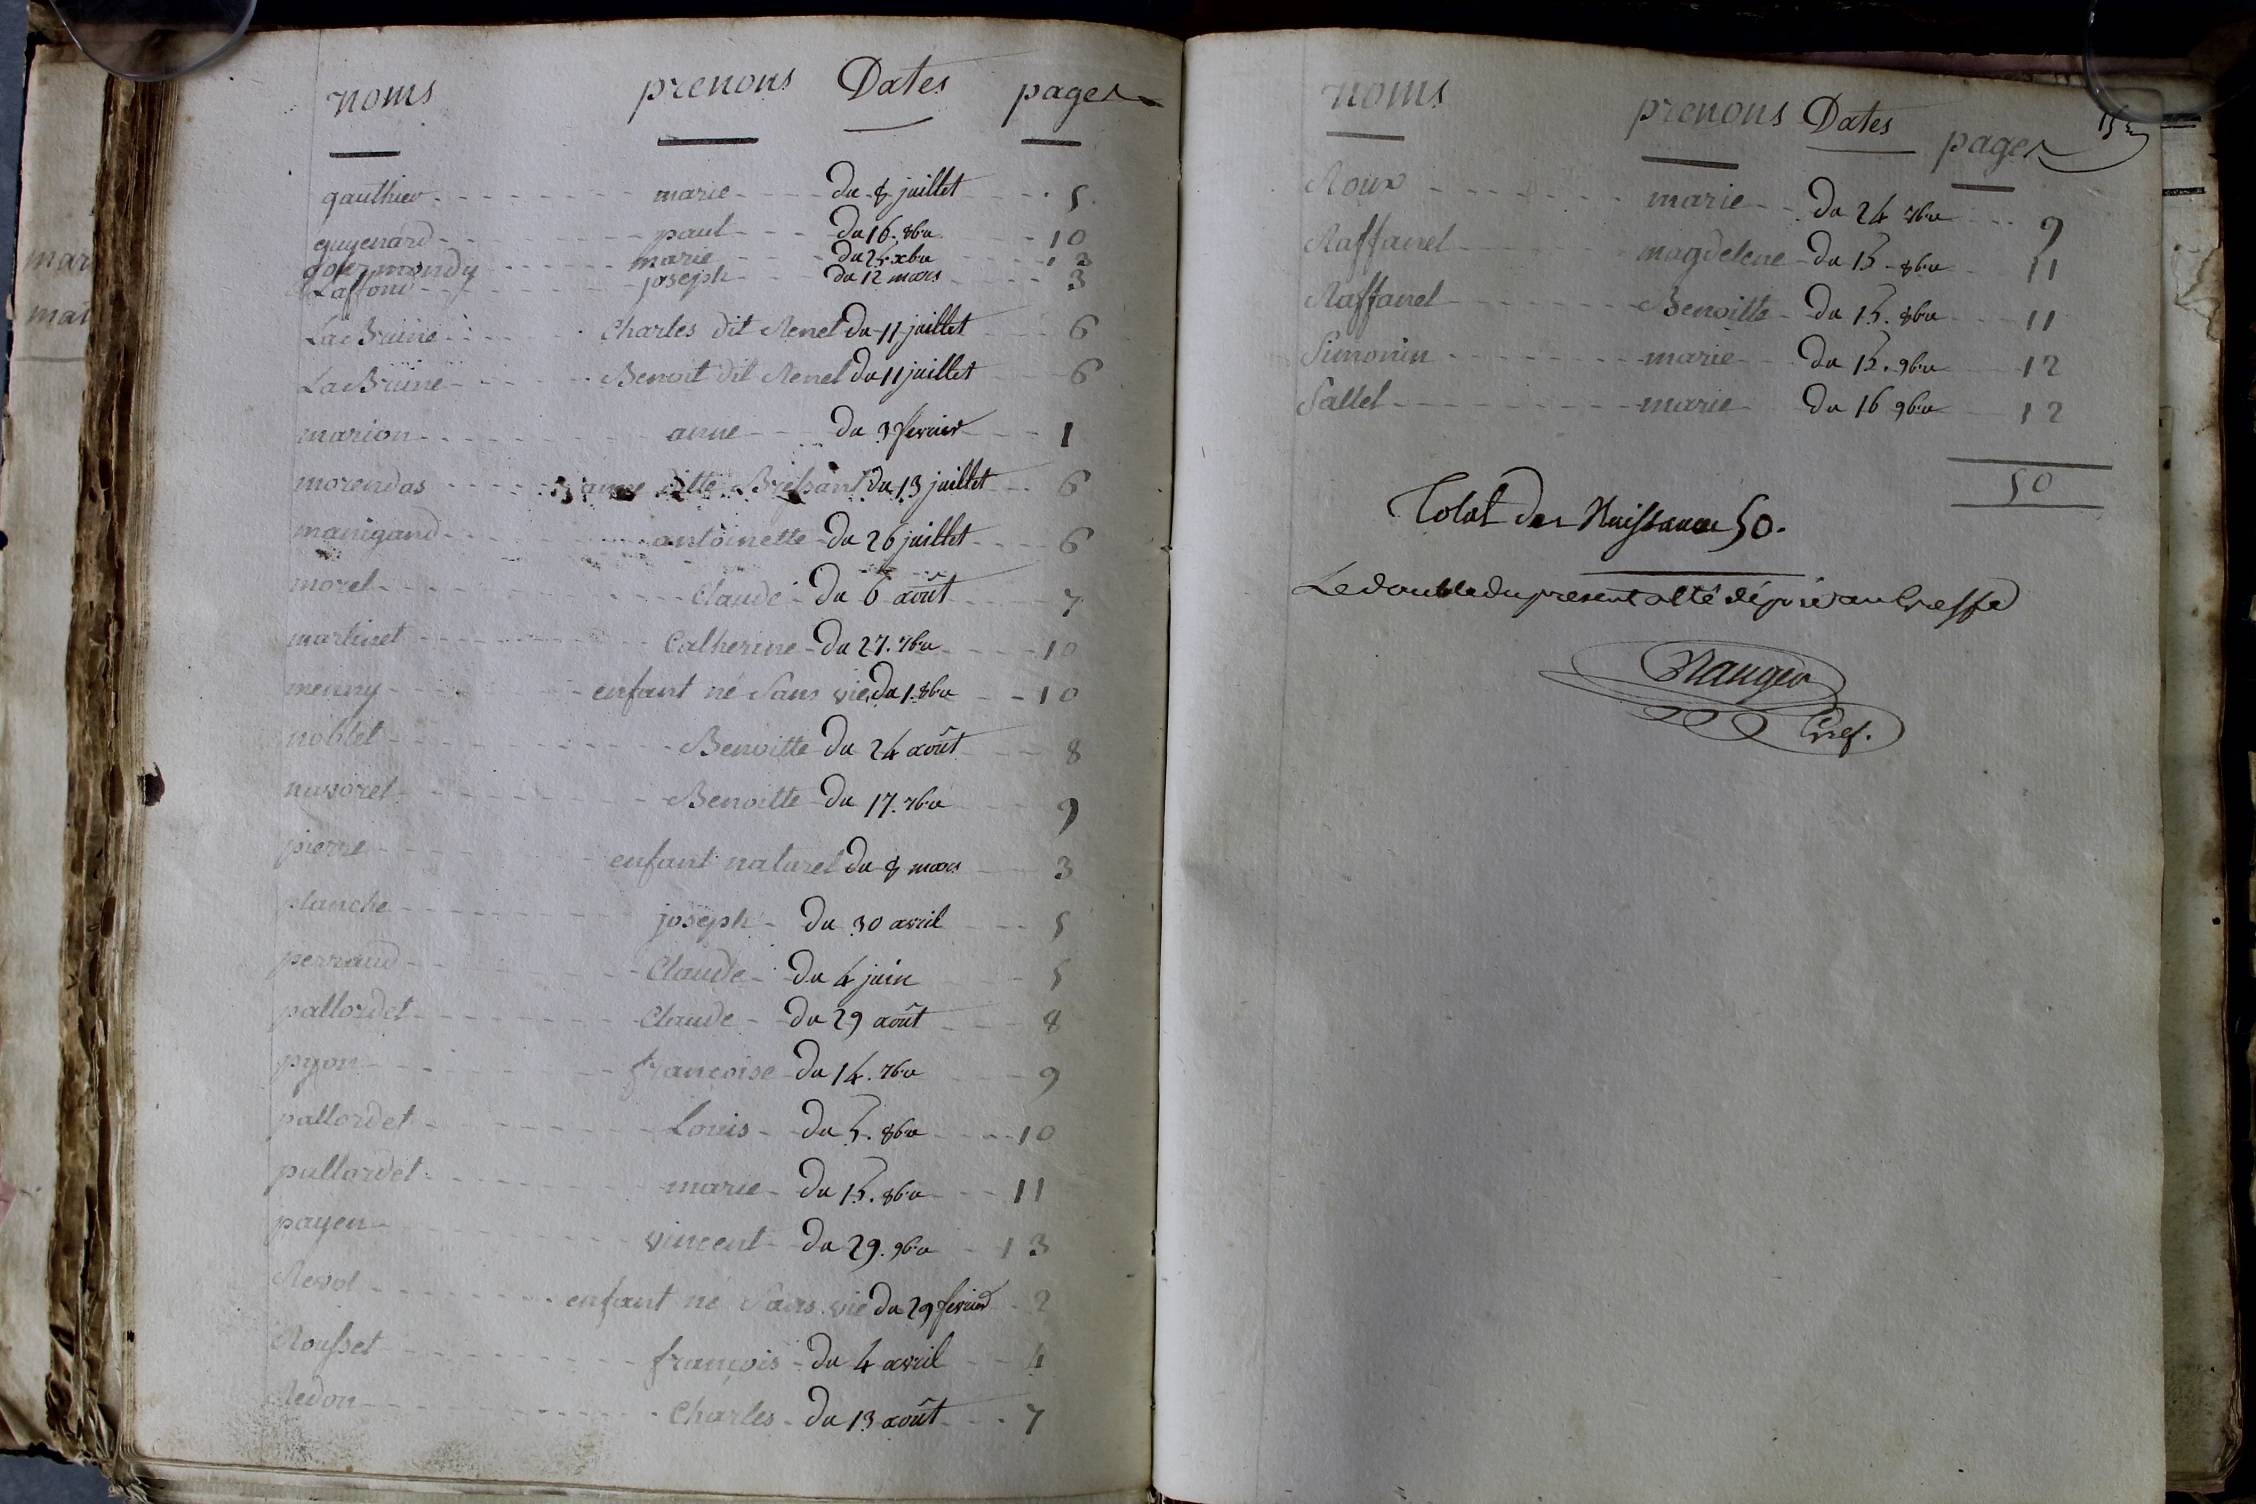 mar
mar
noms prenons Dates pages
gauthier marie du 8 juillet 5
guyenard paul du 16. 8bre 10
gourmondy marie du 25 xbre 2
Laffont joseph du 12 mars 3
La Bruine Charles dit Renel du 11 juillet 6
La Bruine Benoit dit Renel du 11 juillet 6
marion anne du 3 fevrier 1
morendas anne ditte Bressant du 13 juillet 6
manigand antoinette du 26 juillet 6
morel Claude du 6 août 7
martinet Catherine du 27. 7bre 10
menny enfant né Sans vie du 1. 8bre 10
noblet Benoitte du 24 août 8
Benoitte du 17. 7bre 9
pierre enfant naturel du 8 mars 3
planche joseph du 30 avril 5
perraud Claude du 4 juin 5
pallordet Claude du 29 août 8
pyon françoise du 14. 7bre 9
pallordet Louis du 5. 8bre 10
pallordet marie du 15. 8bre 11
payen vincent du 29. 9bre 13
Revol enfant né Sans vie du 29 fevrier 2
Rousset françois du 4 avril 4
Redon Charles du 13 août 7
noms prenons Dates pages
Roux marie du 24 7bre 9
Raffanel magdelene du 15 8bre 11
Raffanel Benoitte du 15. 8bre 11
Simonin marie du 15. 9bre 12
Sallet marie du 16 9bre 12
50
Total des Naissances 50.
Le double du present a été déposé au Greffe
Gref.